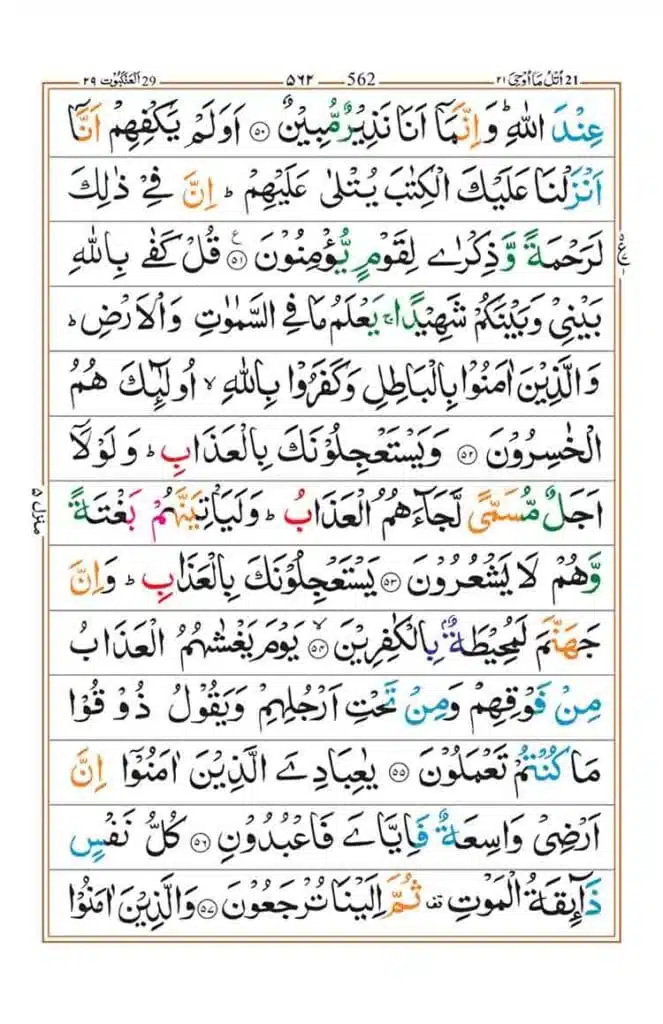 21 اُتْلُ مَاۤ اُوْحِیَ ۲۱ 562 ۵۶۲ 29 اَلْعَنْكَبُوْت ۲۹
عِنْدَ اللّٰهِ ؕ وَاِنَّمَاۤ اَنَا نَذِیْرٌ مُّبِیْنٌ ﴿۵۰﴾ اَوَلَمْ یَكْفِهِمْ اَنَّاۤ
اَنْزَلْنَا عَلَیْكَ الْكِتٰبَ یُتْلٰی عَلَیْهِمْ ؕ اِنَّ فِیْ ذٰلِكَ
لَرَحْمَةً وَّ ذِكْرٰی لِقَوْمٍ یُّؤْمِنُوْنَ ﴿۵۱﴾ ع قُلْ كَفٰی بِاللّٰهِ
بَیْنِیْ وَ بَیْنَكُمْ شَهِیْدًا ۚ یَعْلَمُ مَا فِی السَّمٰوٰتِ وَالْاَرْضِ ؕ
وَالَّذِیْنَ اٰمَنُوْا بِالْبَاطِلِ وَ كَفَرُوْا بِاللّٰهِ ۙ اُولٰٓئِكَ هُمُ
الْخٰسِرُوْنَ ﴿۵۲﴾ وَیَسْتَعْجِلُوْنَكَ بِالْعَذَابِ ؕ وَ لَوْلَاۤ
اَجَلٌ مُّسَمًّی لَّجَآءَهُمُ الْعَذَابُ ؕ وَلَیَاْتِیَنَّهُمْ بَغْتَةً
وَّ هُمْ لَا یَشْعُرُوْنَ ﴿۵۳﴾ یَسْتَعْجِلُوْنَكَ بِالْعَذَابِ ؕ وَاِنَّ
جَهَنَّمَ لَمُحِیْطَةٌۢ بِالْكٰفِرِیْنَ ﴿۵۴﴾ ۙ یَوْمَ یَغْشٰىهُمُ الْعَذَابُ
مِنْ فَوْقِهِمْ وَمِنْ تَحْتِ اَرْجُلِهِمْ وَیَقُوْلُ ذُوْقُوْا
مَا كُنْتُمْ تَعْمَلُوْنَ ﴿۵۵﴾ یٰعِبَادِیَ الَّذِیْنَ اٰمَنُوْۤا اِنَّ
اَرْضِیْ وَاسِعَةٌ فَاِیَّایَ فَاعْبُدُوْنِ ﴿۵۶﴾ كُلُّ نَفْسٍ
ذَآئِقَةُ الْمَوْتِ قف ثُمَّ اِلَیْنَا تُرْجَعُوْنَ ﴿۵۷﴾ وَالَّذِیْنَ اٰمَنُوْا
منزل ۵